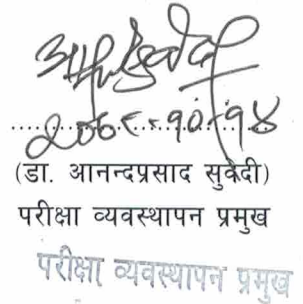 २०७९.१०।१४
(डा. आनन्दप्रसाद सुवेदी)
परीक्षा व्यवस्थापन प्रमुख
परीक्षा व्यवस्थापन प्रमुख